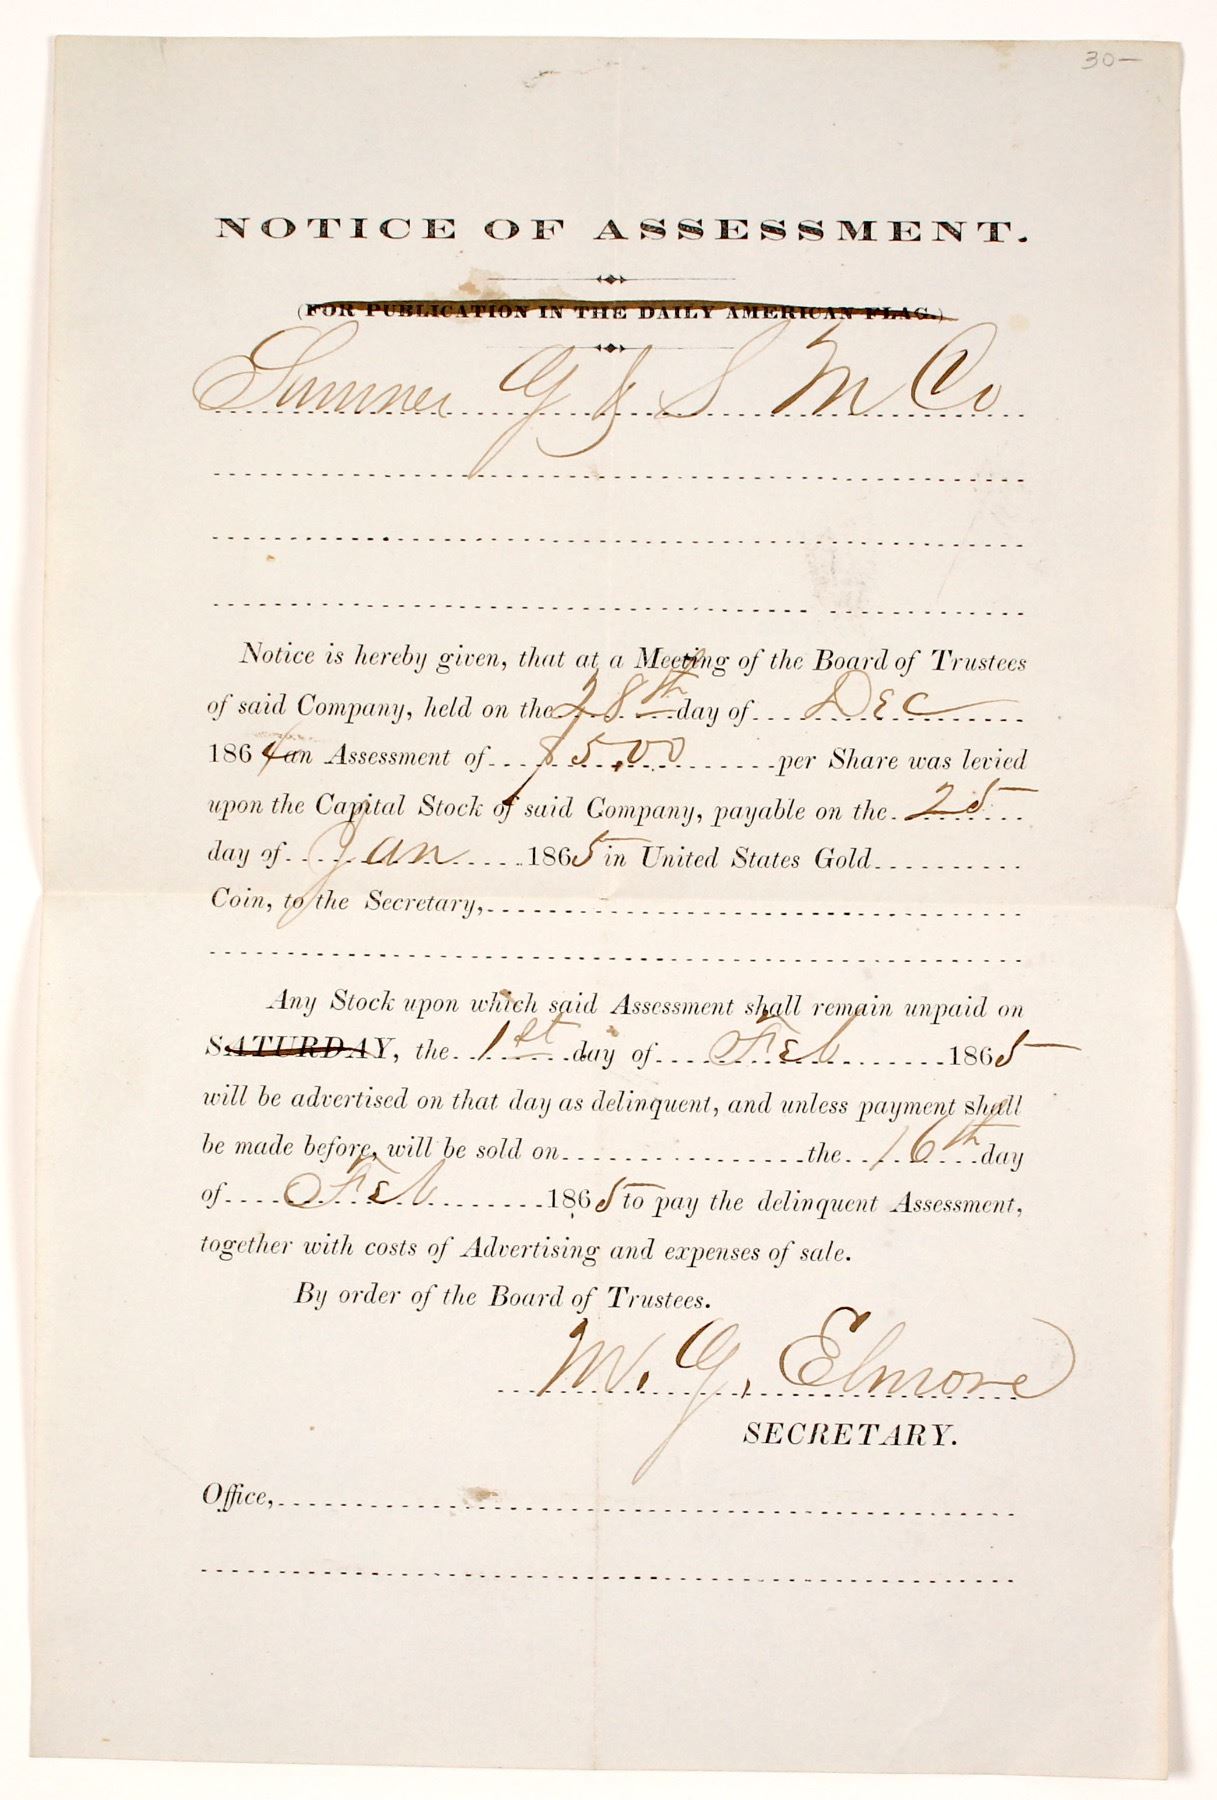 30—
NOTICE OF ASSESSMENT.
(FOR PUBLICATION IN THE DAILY AMERICAN FLAG.)
Sumner G & S M Co
Notice is hereby given, that at a Meeting of the Board of Trustees
of said Company, held on the 28th day of Dec
1864 an Assessment of $5.00 per Share was levied
upon the Capital Stock of said Company, payable on the 25
day of Jan 1865 in United States Gold
Coin, to the Secretary,
Any Stock upon which said Assessment shall remain unpaid on
SATURDAY, the 1st day of Feb 1865
will be advertised on that day as delinquent, and unless payment shall
be made before, will be sold on the 16th day
of Feb 1865 to pay the delinquent Assessment,
together with costs of Advertising and expenses of sale.
By order of the Board of Trustees.
M. G. Elmore
SECRETARY.
Office,